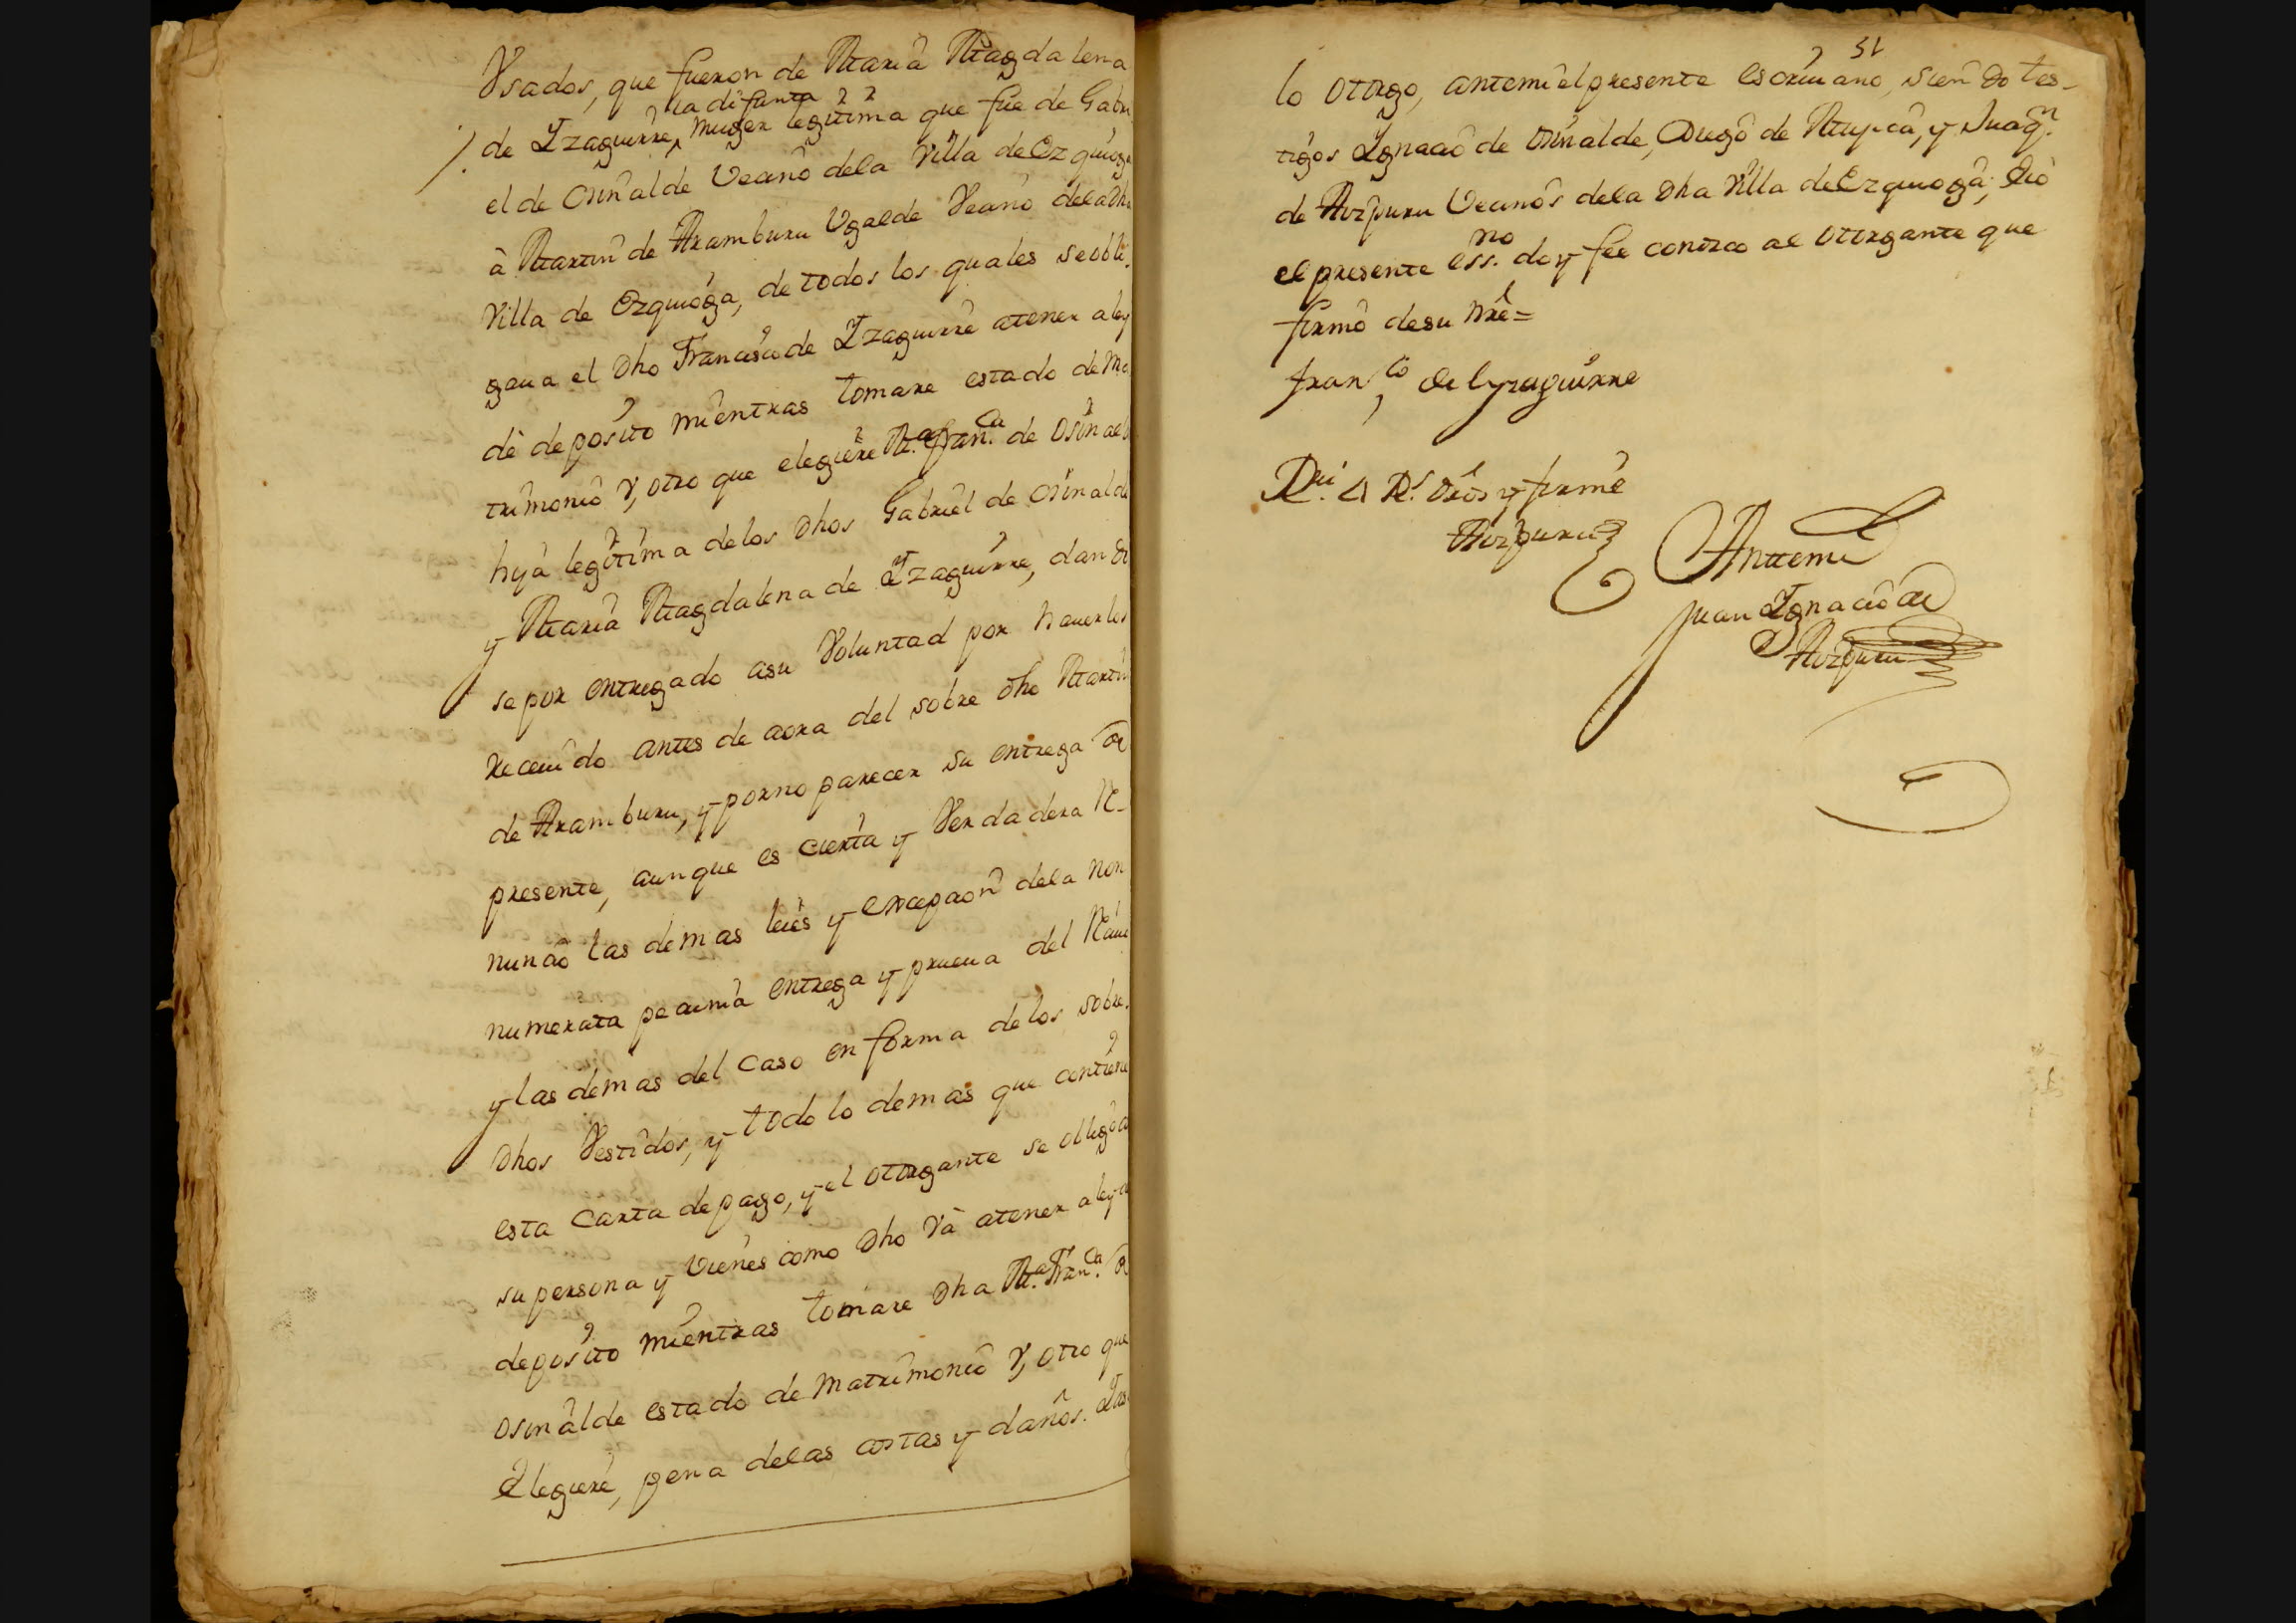 Vsados, que fueron de Maria Magdalena
la difunta
de Yzaguirre, muger legitima que fue de Gabri
el de Osinalde Vecino dela Villa de Ezquioga
à Martin de Aramburu Vgalde Vecino dela dha
Villa de Ezquioga, de todos los quales se obli-
gaua el dho Francisco de Yzaguirre atener a ley
de deposito mientras tomare estado de Ma
trimonio v, otro que elegiere Ma. Franca. de Osinald
hija legitima delos dhos Gabriel de Osinalde
y Maria Magdalena de Yzaguirre, dando
se por entregado asu Voluntad por hauerlos
receuido antes de aora del sobre dho Martin
de Aramburu, y porno parecer su entrega de
presente, aunque es cierta y Verdadera Re-
nunció las demas leies y excepcion dela non
numerata pecunia entrega y prueua del Reciui
y las demas del caso en forma delos sobre.
dhos Vestidos, y todo lo demas que contiene
esta Carta depago, y el otorgante se obligò a
su persona y vienes como dho Và atener a ley de
deposito mientras tomare dha Ma. Franca. de
osinalde estado de Matrimonio v, otro que
Elegiere, pena delas costas y daños.
51
lo otorgo, antemi el presente escriuano, siendo tes-
tigos Ygnacio de Osinalde, Diego de Mugica, y Juaqn.
de Aizpuru Vecinos dela dha Villa de Ezquioga,
el presente essno. doy fee conozco al otorgante que
firmò desu nre=
Franco. de Yzaguirre
Rui. D Rs. dros y firmé
Aizpuru
Anttemi
Juan Ygnacio de
Aizpuru